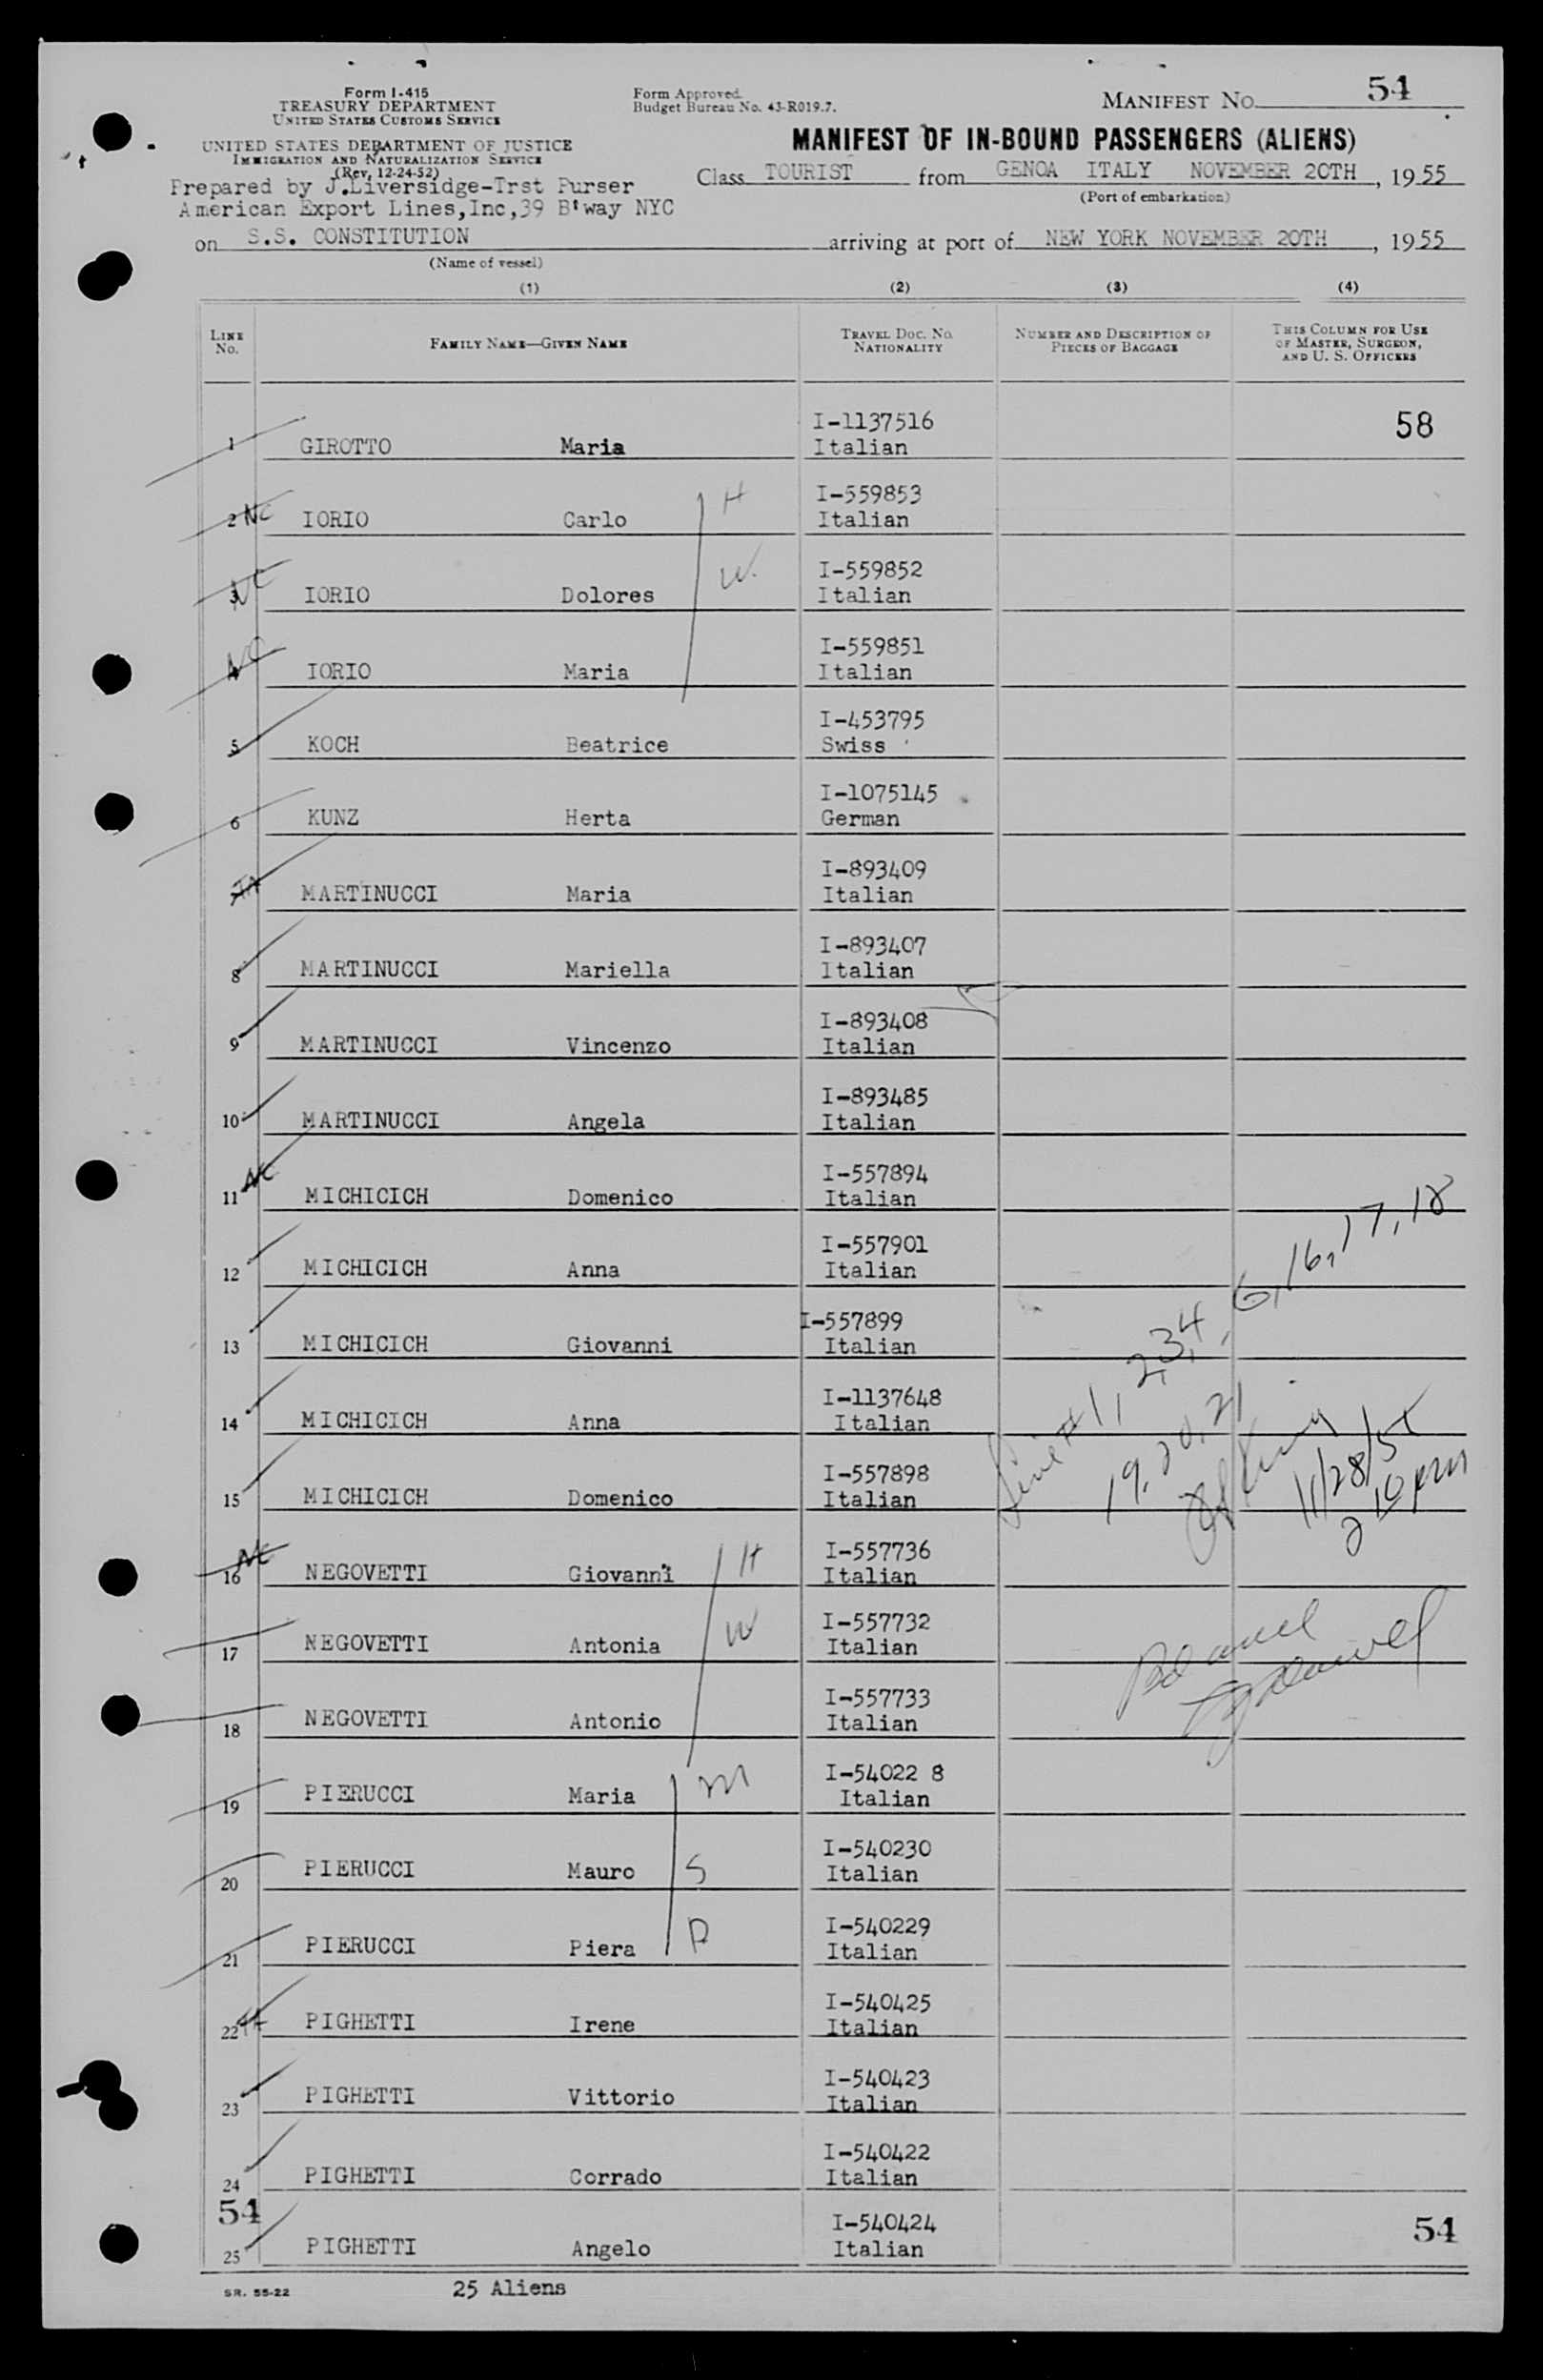 Form I-415
TREASURY DEPARTMENT
UNITED STATES CUSTOMS SERVICE
UNITED STATES DEPARTMENT OF JUSTICE
IMMIGRATION AND NATURALIZATION SERVICE
(Rev. 12-24-52)
Prepared by J.Liversidge-Trst Purser
American Export Lines,Inc,39 B'way NYC
Form Approved.
Budget Bureau No. 43-R019.7.
MANIFEST NO. 54
MANIFEST OF IN-BOUND PASSENGERS (ALIENS)
Class TOURIST from GENOA ITALY NOVEMBER 20TH, 1955
(Port of embarkation)
on S.S. CONSTITUTION arriving at port of NEW YORK NOVEMBER 20TH, 1955
(Name of vessel)
(1) (2) (3) (4)
LINE NO. FAMILY NAME—GIVEN NAME TRAVEL DOC. NO. NATIONALITY NUMBER AND DESCRIPTION OF PIECES OF BAGGAGE THIS COLUMN FOR USE OF MASTER, SURGEON, AND U. S. OFFICERS
1 GIROTTO Maria I-1137516 Italian 58
2 NC IORIO Carlo H I-559853 Italian
3 NC IORIO Dolores W. I-559852 Italian
4 NC IORIO Maria I-559851 Italian
5 KOCH Beatrice I-453795 Swiss
6 KUNZ Herta I-1075145 German
7 MARTINUCCI Maria I-893409 Italian
8 MARTINUCCI Mariella I-893407 Italian
9 MARTINUCCI Vincenzo I-893408 Italian
10 MARTINUCCI Angela I-893485 Italian
11 NC MICHICICH Domenico I-557894 Italian
12 MICHICICH Anna I-557901 Italian
13 MICHICICH Giovanni I-557899 Italian
14 MICHICICH Anna I-1137648 Italian
15 MICHICICH Domenico I-557898 Italian
Line # 1, 2, 3, 4, 6, 16, 17, 18
19, 20, 21
11/28/55
2 10 pm
16 NC NEGOVETTI Giovanni H I-557736 Italian
17 NEGOVETTI Antonia W I-557732 Italian
18 NEGOVETTI Antonio I-557733 Italian
19 PIERUCCI Maria M I-54022 8 Italian
20 PIERUCCI Mauro S I-540230 Italian
21 PIERUCCI Piera D I-540229 Italian
22 PIGHETTI Irene I-540425 Italian
23 PIGHETTI Vittorio I-540423 Italian
24 PIGHETTI Corrado I-540422 Italian
54 54
25 PIGHETTI Angelo I-540424 Italian
SR. 55-22 25 Aliens